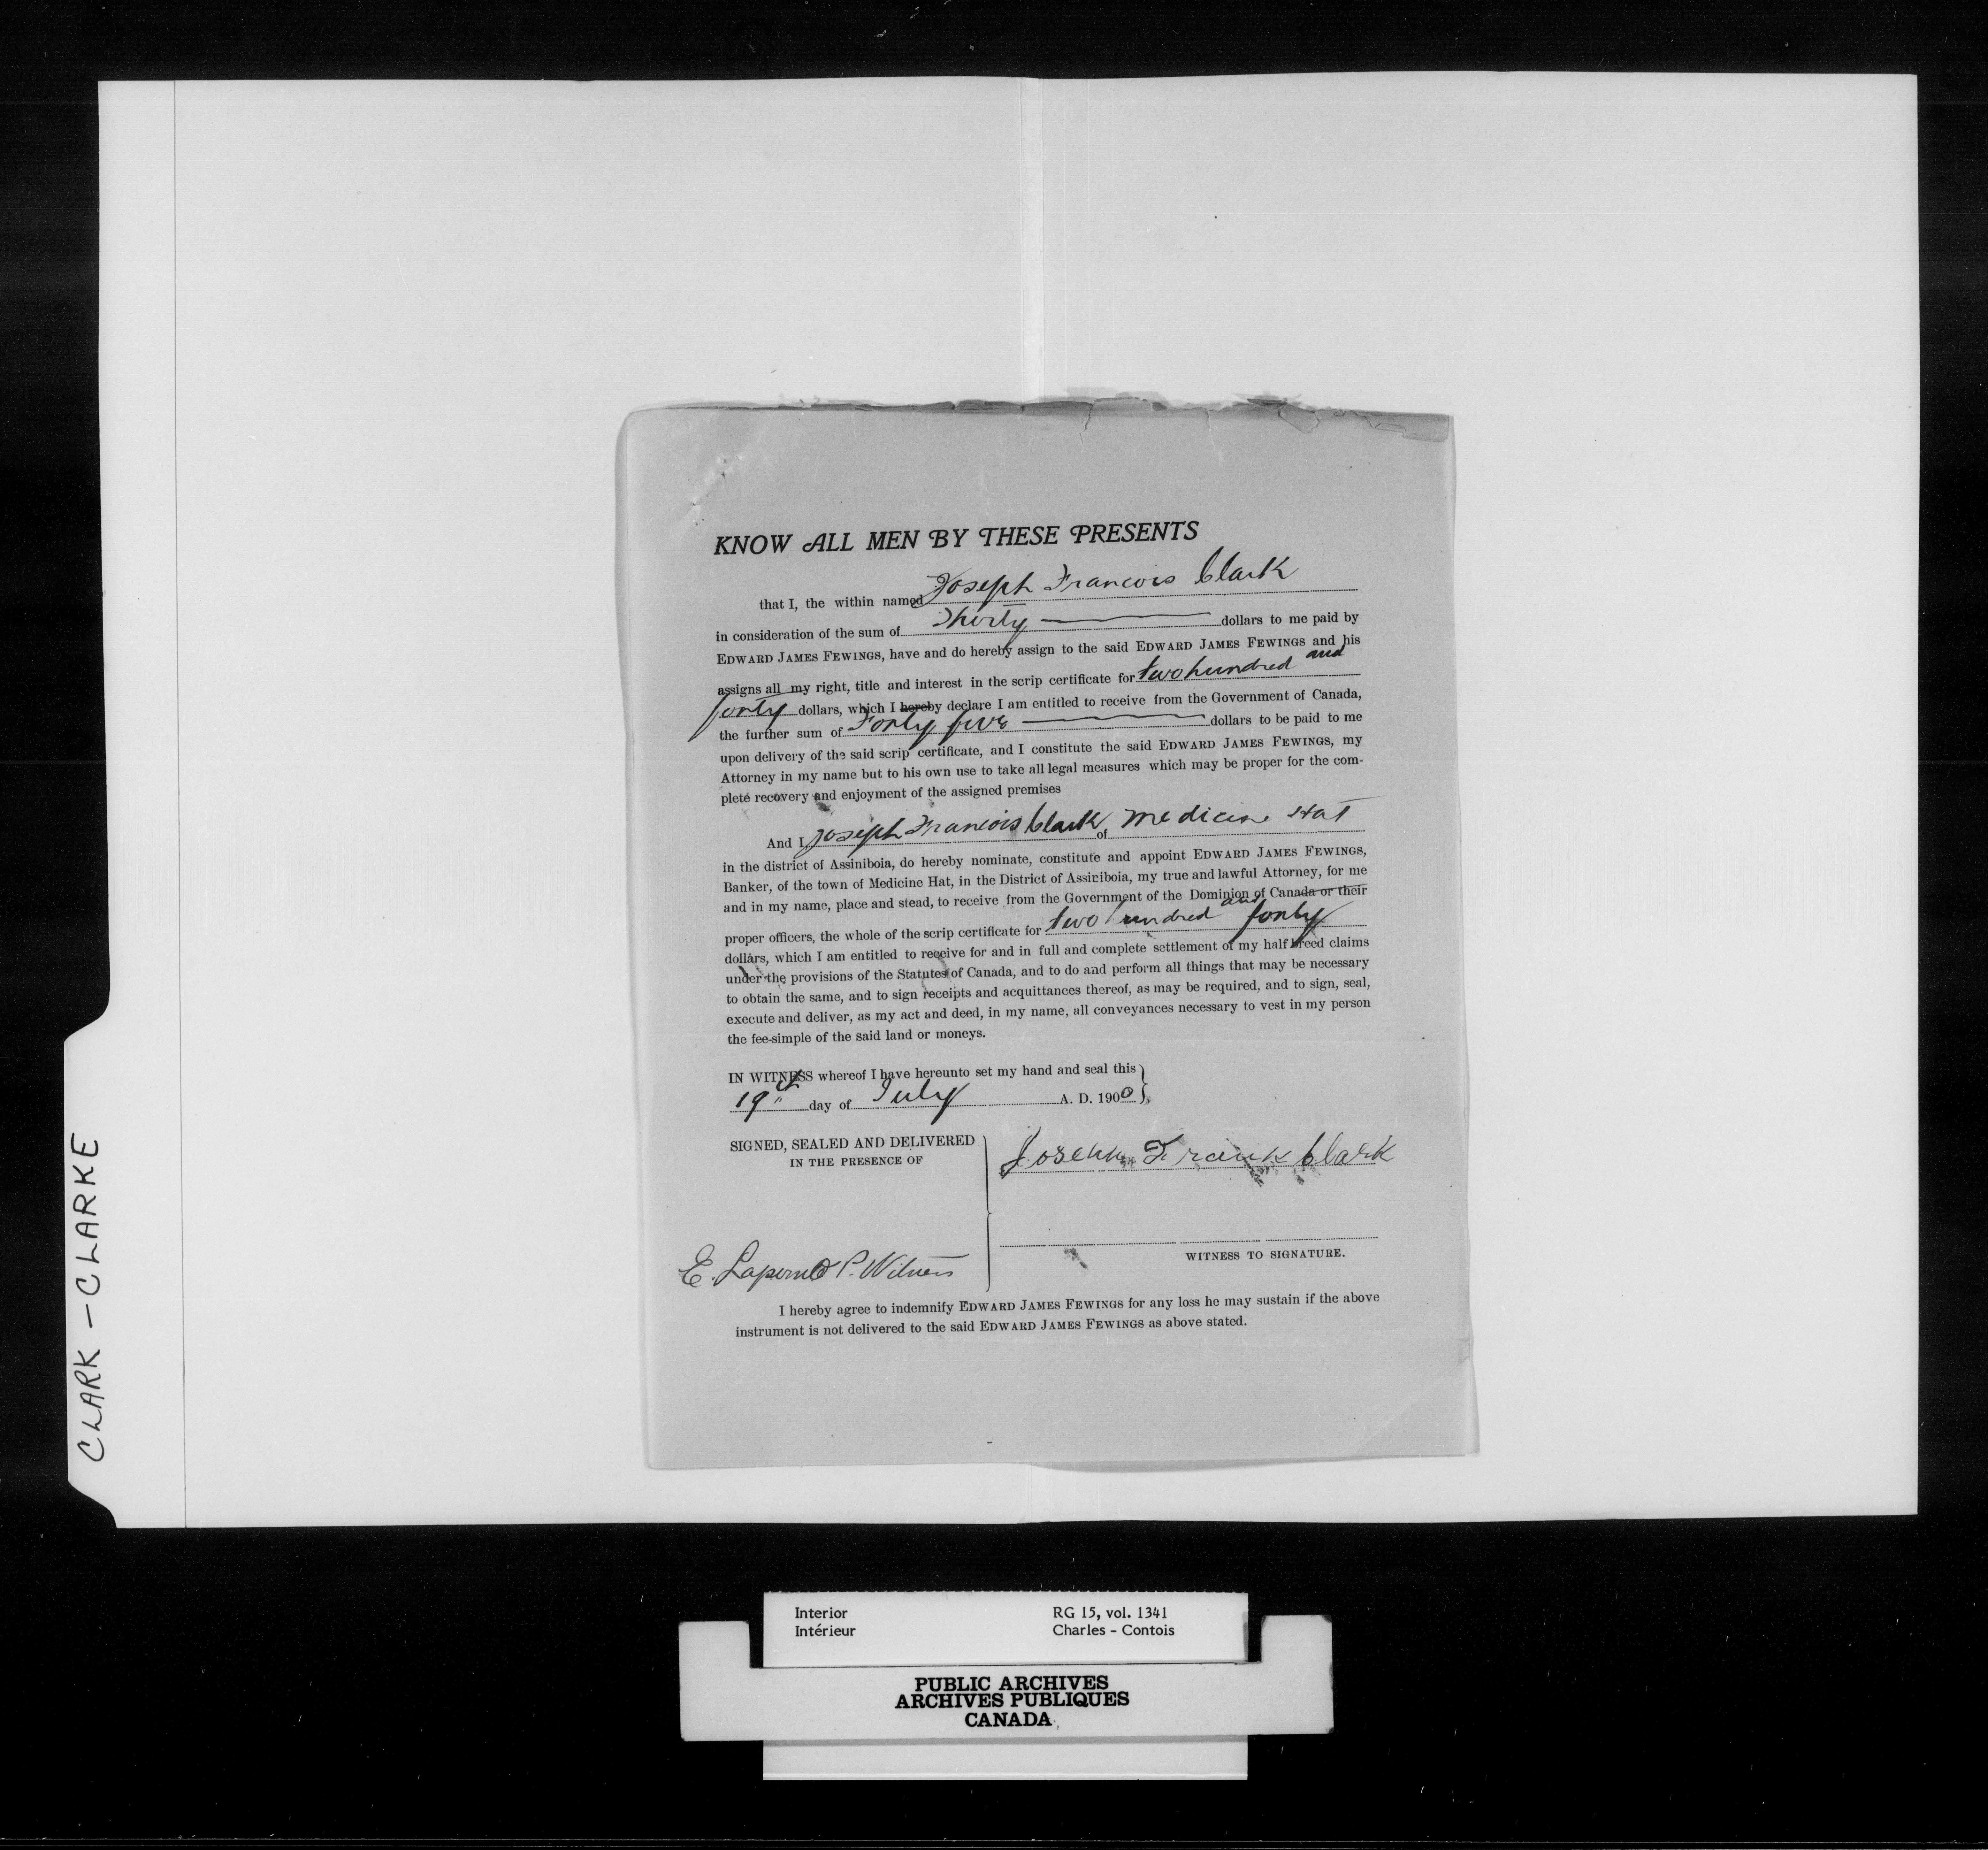 KNOW ALL MEN BY THESE PRESENTS
that I, the within named Joseph Francois Clark
in consideration of the sum of Thirty dollars to me paid by
EDWARD JAMES FEWINGS, have and do hereby assign to the said EDWARD JAMES FEWINGS and his
assigns all my right, title and interest in the scrip certificate for two hundred and
forty dollars, which I hereby declare I am entitled to receive from the Government of Canada,
the further sum of Forty five dollars to be paid to me
upon delivery of the said scrip certificate, and I constitute the said EDWARD JAMES FEWINGS, my
Attorney in my name but to his own use to take all legal measures which may be proper for the com-
plete recovery and enjoyment of the assigned premises
And I, Joseph Francois Clark of Medicine Hat
in the district of Assiniboia, do hereby nominate, constitute and appoint EDWARD JAMES FEWINGS,
Banker, of the town of Medicine Hat, in the District of Assiniboia, my true and lawful Attorney, for me
and in my name, place and stead, to receive from the Government of the Dominion of Canada or their
proper officers, the whole of the scrip certificate for two hundred and forty
dollars, which I am entitled to receive for and in full and complete settlement of my half breed claims
under the provisions of the Statutes of Canada, and to do and perform all things that may be necessary
to obtain the same, and to sign receipts and acquittances thereof, as may be required, and to sign, seal,
execute and deliver, as my act and deed, in my name, all conveyances necessary to vest in my person
the fee-simple of the said land or moneys.
IN WITNESS whereof I have hereunto set my hand and seal this
19th day of July A. D. 1900
SIGNED, SEALED AND DELIVERED
IN THE PRESENCE OF
Joseph Frank Clark
WITNESS TO SIGNATURE.
E. Witness
I hereby agree to indemnify EDWARD JAMES FEWINGS for any loss he may sustain if the above
instrument is not delivered to the said EDWARD JAMES FEWINGS as above stated.
CLARK - CLARKE
Interior RG 15, vol. 1341
Intérieur Charles - Contois
PUBLIC ARCHIVES
ARCHIVES PUBLIQUES
CANADA